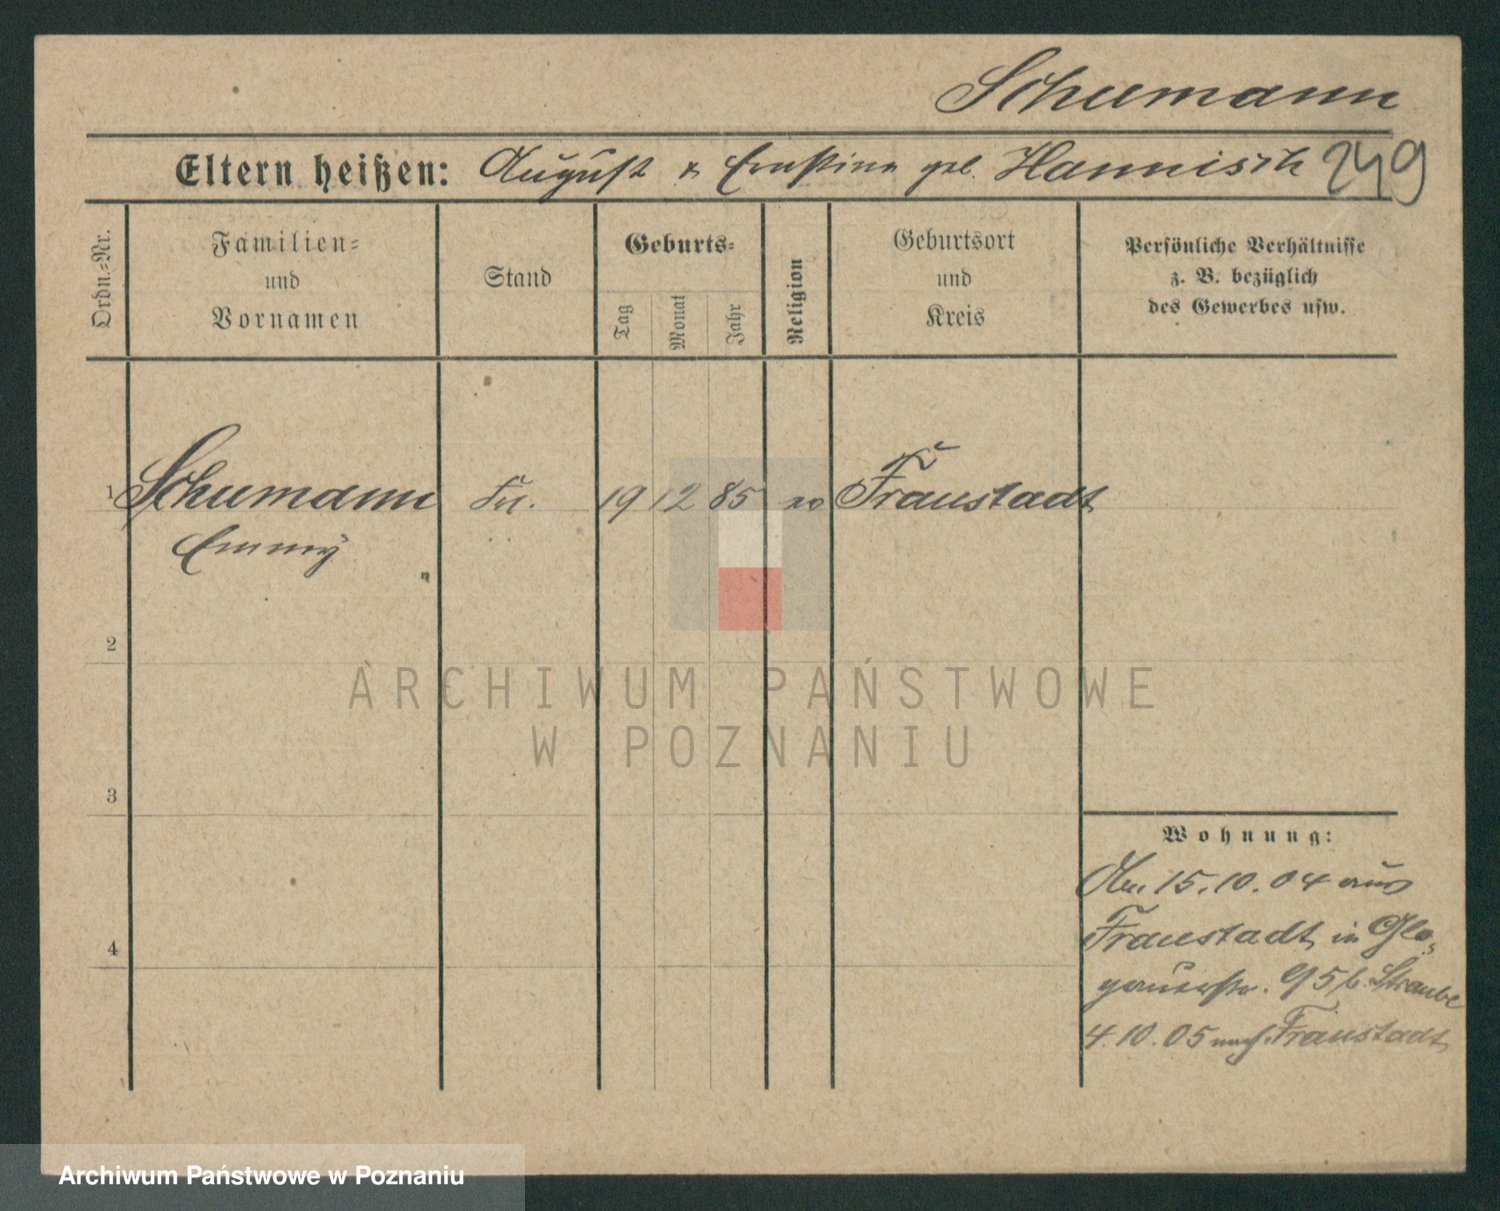 Schumann
Eltern heißen: August & Ernstine geb. Hannisch 249
Ordn.-Nr.
Familien-
und
Vornamen
Stand
Geburts-
Tag
Monat
Jahr
Religion
Geburtsort
und
Kreis
Persönliche Verhältnisse
z. B. bezüglich
des Gewerbes usw.
1 Schumann Frl. 19 12 85 ev Fraustadt
Emmy
2
3
4
Wohnung:
Am 15.10.04 aus
Fraustadt in Glo-
gauerstr. 95 b. Straube
4.10.05 nach Fraustadt
ARCHIWUM PAŃSTWOWE
W POZNANIU
Archiwum Państwowe w Poznaniu